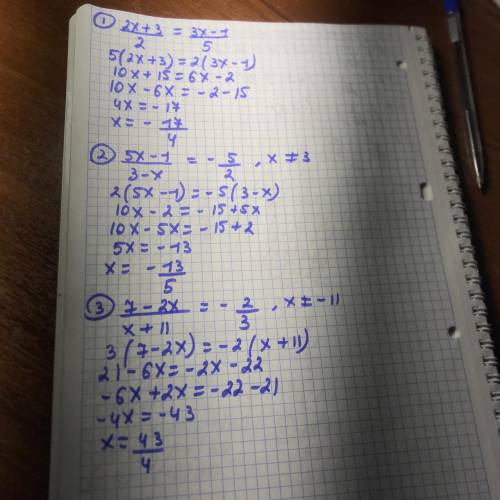 ① (2x+3)/2 = (3x-1)/5
5(2x+3)=2(3x-1)
10x+15=6x-2
10x-6x=-2-15
4x=-17
x=-17/4
② (5x-1)/(3-x) = -5/2, x≠3
2(5x-1)=-5(3-x)
10x-2=-15+5x
10x-5x=-15+2
5x=-13
x=-13/5
③ (7-2x)/(x+11) = -2/3, x≠-11
3(7-2x)=-2(x+11)
21-6x=-2x-22
-6x+2x=-22-21
-4x=-43
x=43/4